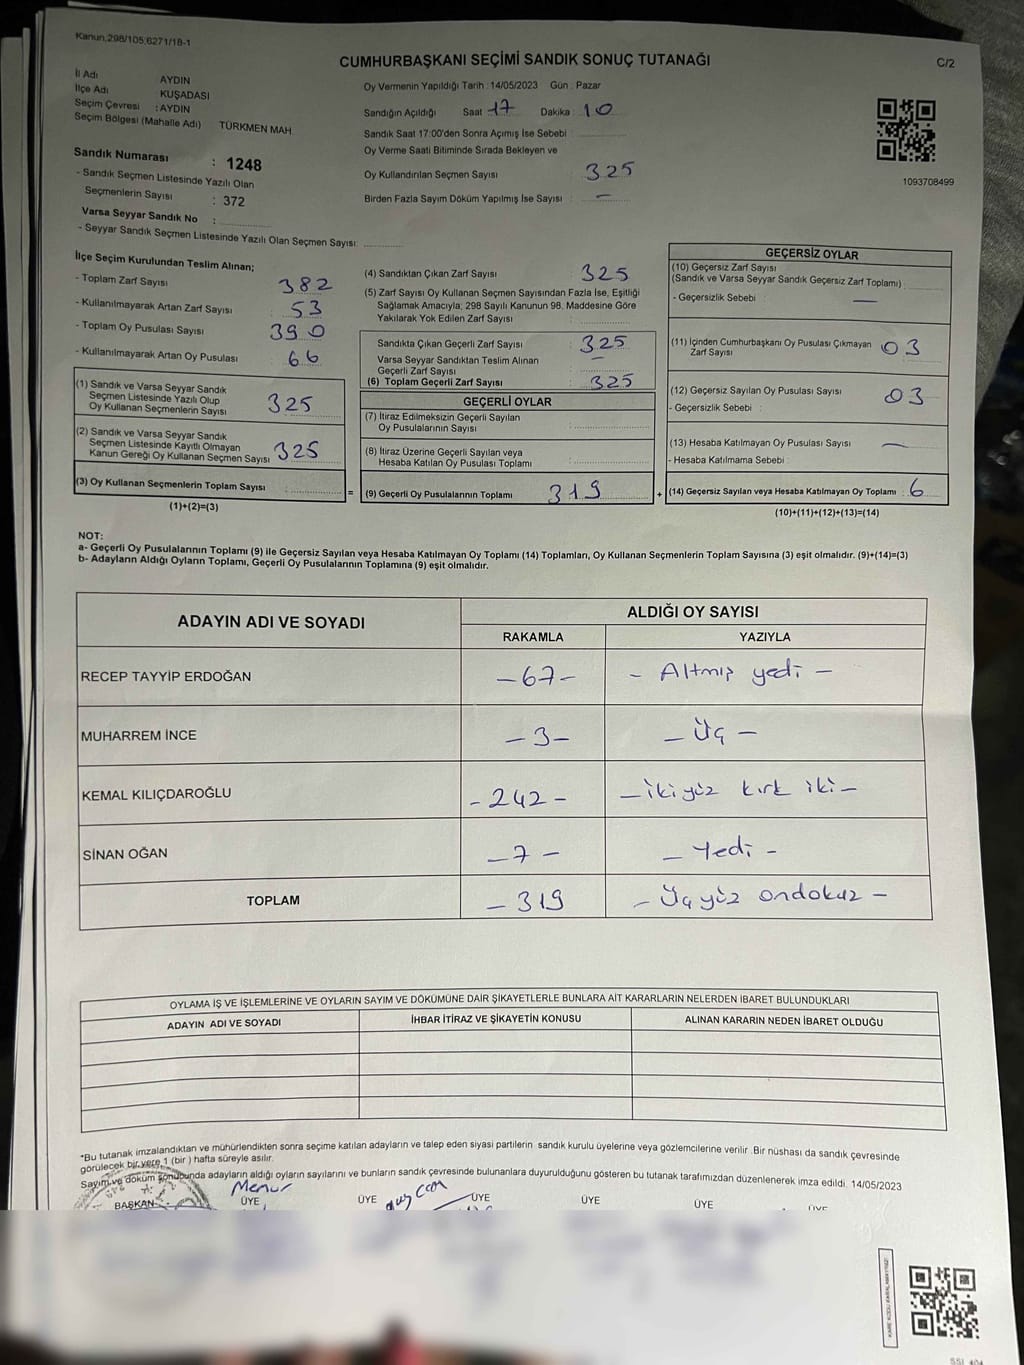 Kanun,298/105,6271/18-1
CUMHURBAŞKANI SEÇİMİ SANDIK SONUÇ TUTANAĞI
C/2
İl Adı AYDIN
İlçe Adı KUŞADASI
Seçim Çevresi : AYDIN
Seçim Bölgesi (Mahalle Adı) TÜRKMEN MAH
Sandık Numarası : 1248
- Sandık Seçmen Listesinde Yazılı Olan
Seçmenlerin Sayısı : 372
Varsa Seyyar Sandık No :
- Seyyar Sandık Seçmen Listesinde Yazılı Olan Seçmen Sayısı:
Oy Vermenin Yapıldığı Tarih : 14/05/2023 Gün : Pazar
Sandığın Açıldığı Saat 17 Dakika : 10
Sandık Saat 17:00'den Sonra Açımış İse Sebebi :
Oy Verme Saati Bitiminde Sırada Bekleyen ve
Oy Kullandırılan Seçmen Sayısı : 325
Birden Fazla Sayım Döküm Yapılmış İse Sayısı : –
1093708499
İlçe Seçim Kurulundan Teslim Alınan;
- Toplam Zarf Sayısı : 382
- Kullanılmayarak Artan Zarf Sayısı : 53
- Toplam Oy Pusulası Sayısı : 390
- Kullanılmayarak Artan Oy Pusulası : 66
(1) Sandık ve Varsa Seyyar Sandık
Seçmen Listesinde Yazılı Olup
Oy Kullanan Seçmenlerin Sayısı : 325
(2) Sandık ve Varsa Seyyar Sandık
Seçmen Listesinde Kayıtlı Olmayan
Kanun Gereği Oy Kullanan Seçmen Sayısı : 325
(3) Oy Kullanan Seçmenlerin Toplam Sayısı :
(1)+(2)=(3)
=
(4) Sandıktan Çıkan Zarf Sayısı : 325
(5) Zarf Sayısı Oy Kullanan Seçmen Sayısından Fazla İse, Eşitliği
Sağlamak Amacıyla; 298 Sayılı Kanunun 98. Maddesine Göre
Yakılarak Yok Edilen Zarf Sayısı :
Sandıkta Çıkan Geçerli Zarf Sayısı : 325
Varsa Seyyar Sandıktan Teslim Alınan
Geçerli Zarf Sayısı : –
(6) Toplam Geçerli Zarf Sayısı : 325
GEÇERLİ OYLAR
(7) İtiraz Edilmeksizin Geçerli Sayılan
Oy Pusulalarının Sayısı :
(8) İtiraz Üzerine Geçerli Sayılan veya
Hesaba Katılan Oy Pusulası Toplamı :
(9) Geçerli Oy Pusulalarının Toplamı : 319
+
GEÇERSİZ OYLAR
(10) Geçersiz Zarf Sayısı
(Sandık ve Varsa Seyyar Sandık Geçersiz Zarf Toplamı) :
- Geçersizlik Sebebi : —
(11) İçinden Cumhurbaşkanı Oy Pusulası Çıkmayan
Zarf Sayısı : 03
(12) Geçersiz Sayılan Oy Pusulası Sayısı : 03
- Geçersizlik Sebebi :
(13) Hesaba Katılmayan Oy Pusulası Sayısı : —
- Hesaba Katılmama Sebebi :
(14) Geçersiz Sayılan veya Hesaba Katılmayan Oy Toplamı : 6
(10)+(11)+(12)+(13)=(14)
NOT:
a- Geçerli Oy Pusulalarının Toplamı (9) ile Geçersiz Sayılan veya Hesaba Katılmayan Oy Toplamı (14) Toplamları, Oy Kullanan Seçmenlerin Toplam Sayısına (3) eşit olmalıdır. (9)+(14)=(3)
b- Adayların Aldığı Oyların Toplamı, Geçerli Oy Pusulalarının Toplamına (9) eşit olmalıdır.
ADAYIN ADI VE SOYADI ALDIĞI OY SAYISI
RAKAMLA YAZIYLA
RECEP TAYYİP ERDOĞAN –67– – Altmış yedi –
MUHARREM İNCE –3– – Üç –
KEMAL KILIÇDAROĞLU –242– – iki yüz kırk iki –
SİNAN OĞAN –7– – Yedi –
TOPLAM –319 – Üç yüz ondokuz –
OYLAMA İŞ VE İŞLEMLERİNE VE OYLARIN SAYIM VE DÖKÜMÜNE DAİR ŞİKAYETLERLE BUNLARA AİT KARARLARIN NELERDEN İBARET BULUNDUKLARI
ADAYIN ADI VE SOYADI İHBAR İTİRAZ VE ŞİKAYETİN KONUSU ALINAN KARARIN NEDEN İBARET OLDUĞU
*Bu tutanak imzalandıktan ve mühürlendikten sonra seçime katılan adayların ve talep eden siyasi partilerin sandık kurulu üyelerine veya gözlemcilerine verilir .Bir nüshası da sandık çevresinde
görülecek bir yere 1 (bir ) hafta süreyle asılır.
Sayım ve döküm sonucunda adayların aldığı oyların sayılarını ve bunların sandık çevresinde bulunanlara duyurulduğunu gösteren bu tutanak tarafımızdan düzenlenerek imza edildi. 14/05/2023
Memur
BAŞKAN ÜYE ÜYE ÜYE ÜYE ÜYE ÜYE